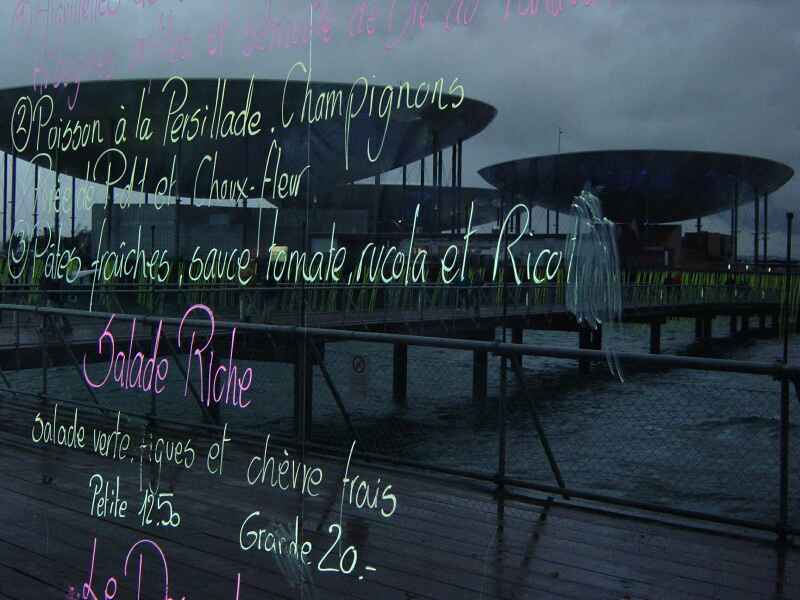 ② Poisson à la Persillade. Champignons
Purée d'Pdt et Choux-fleur
③ Pâtes fraîches, sauce tomate, rucola et Rico
Salade Riche
salade verte, figues et chèvre frais
Petite 12.50
Grande 20.-
Le